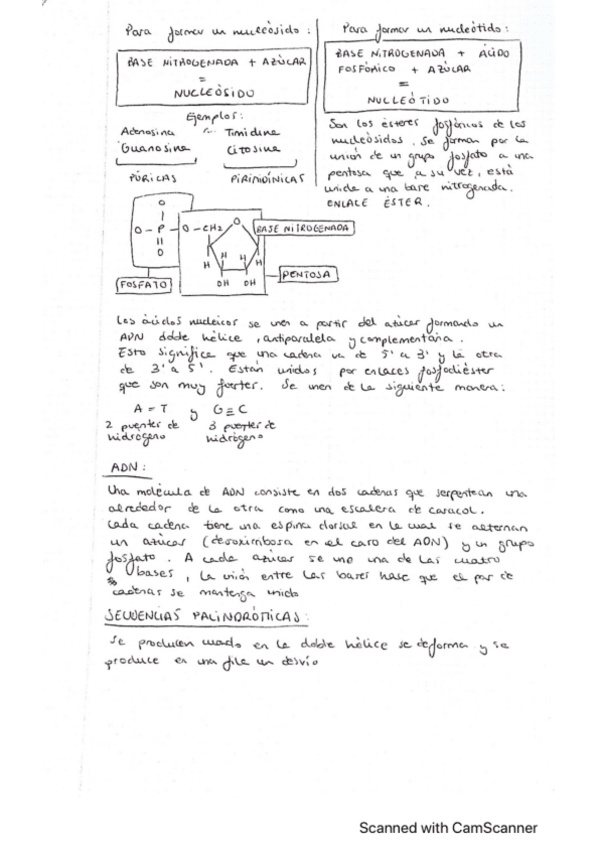 Para formar un nucleósido :
BASE NITROGENADA + AZÚCAR
=
NUCLEÓSIDO
Ejemplos:
Adenosina Timidina
Guanosina Citosina
PÚRICAS PIRIMIDÍNICAS
Para formar un nucleótido :
BASE NITROGENADA + ÁCIDO
FOSFÓRICO + AZÚCAR
=
NUCLEÓTIDO
Son los ésteres fosfóricos de los
nucleósidos. Se forman por la
unión de un grupo fosfato a una
pentosa que a su vez, está
unida a una base nitrogenada.
ENLACE ÉSTER.
O
O - P - O - CH2 O BASE NITROGENADA
O
H H H H
OH OH
FOSFATO
PENTOSA
Los ácidos nucleicos se unen a partir del azúcar formando un
ADN doble hélice, antiparalela y complementaria.
Esto significa que una cadena va de 5' a 3' y la otra
de 3' a 5'. Están unidos por enlaces fosfodiéster
que son muy fuertes. Se unen de la siguiente manera:
A = T y G ≡ C
2 puentes de 3 puentes de
hidrógeno hidrógeno
ADN :
Una molécula de ADN consiste en dos cadenas que serpentean una
alrededor de la otra como una escalera de caracol.
Cada cadena tiene una espina dorsal en la cual se alternan
un azúcar (desoxirribosa en el caso del ADN) y un grupo
fosfato. A cada azúcar se une una de las cuatro
bases, la unión entre las bases hase que el par de
cadenas se mantenga unido
SECUENCIAS PALINDRÓTICAS :
Se producen cuado en la doble hélice se deforma y se
produce en una fila un desvío
Scanned with CamScanner